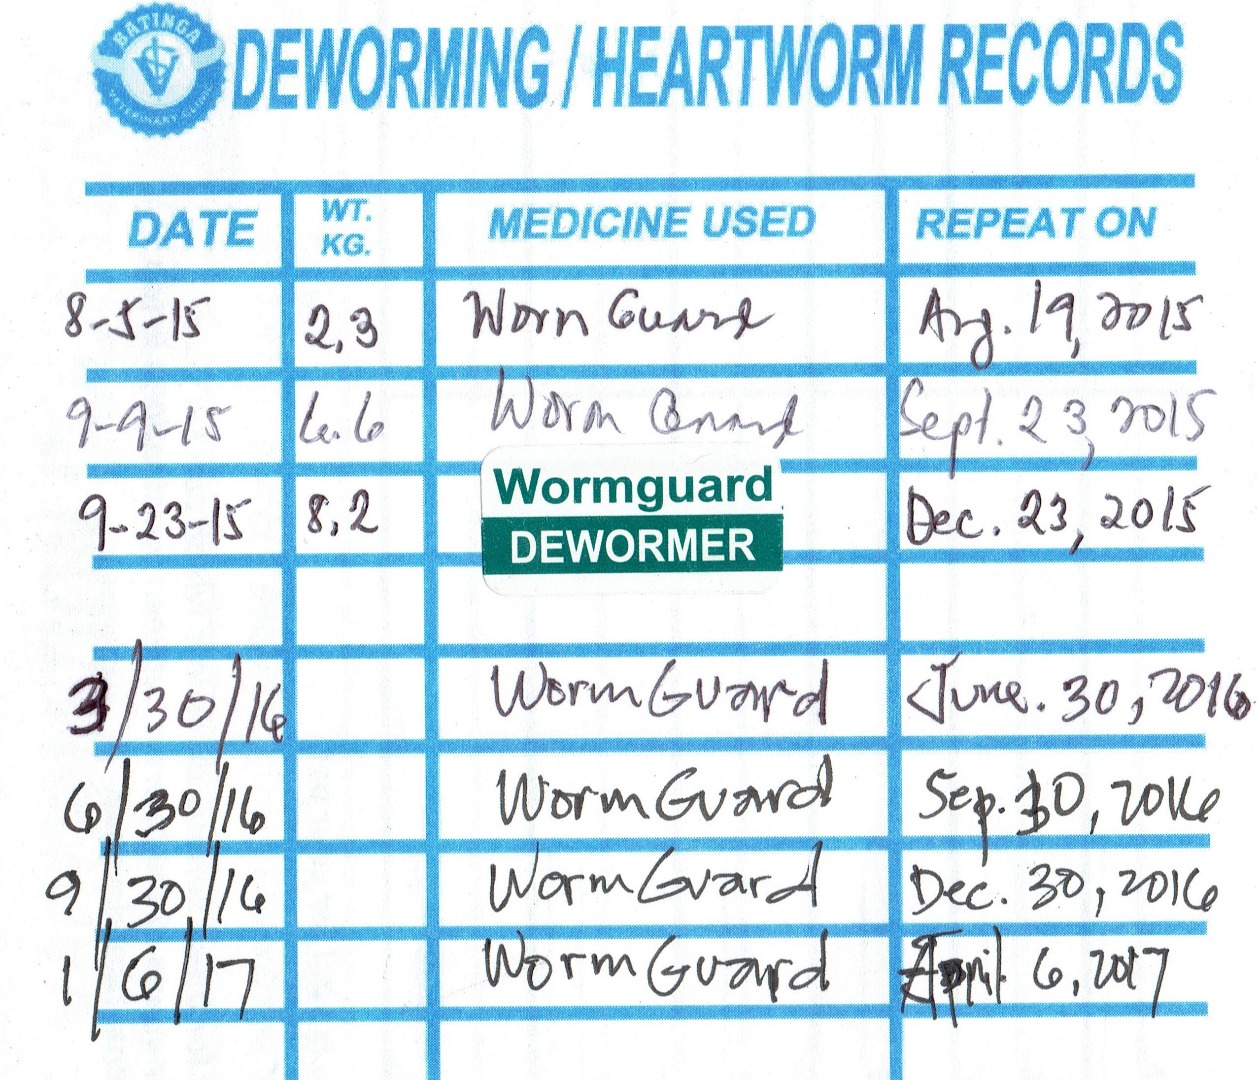 BATINGA
VETERINARY CLINIC
DEWORMING / HEARTWORM RECORDS
DATE WT. KG. MEDICINE USED REPEAT ON
8-5-15 2,3 Worm Guard Aug. 19, 2015
9-9-15 6.6 Worm Guard Sept. 23, 2015
9-23-15 8,2 Wormguard DEWORMER Dec. 23, 2015
3/30/16 Worm Guard June. 30, 2016
6/30/16 Worm Guard Sep. 30, 2016
9/30/16 Worm Guard Dec. 30, 2016
1/6/17 Worm Guard April 6, 2017